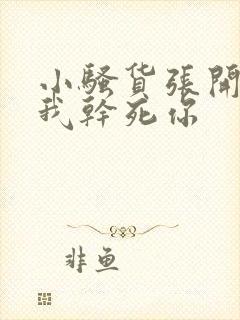 小騷货張開
我幹死你
非鱼